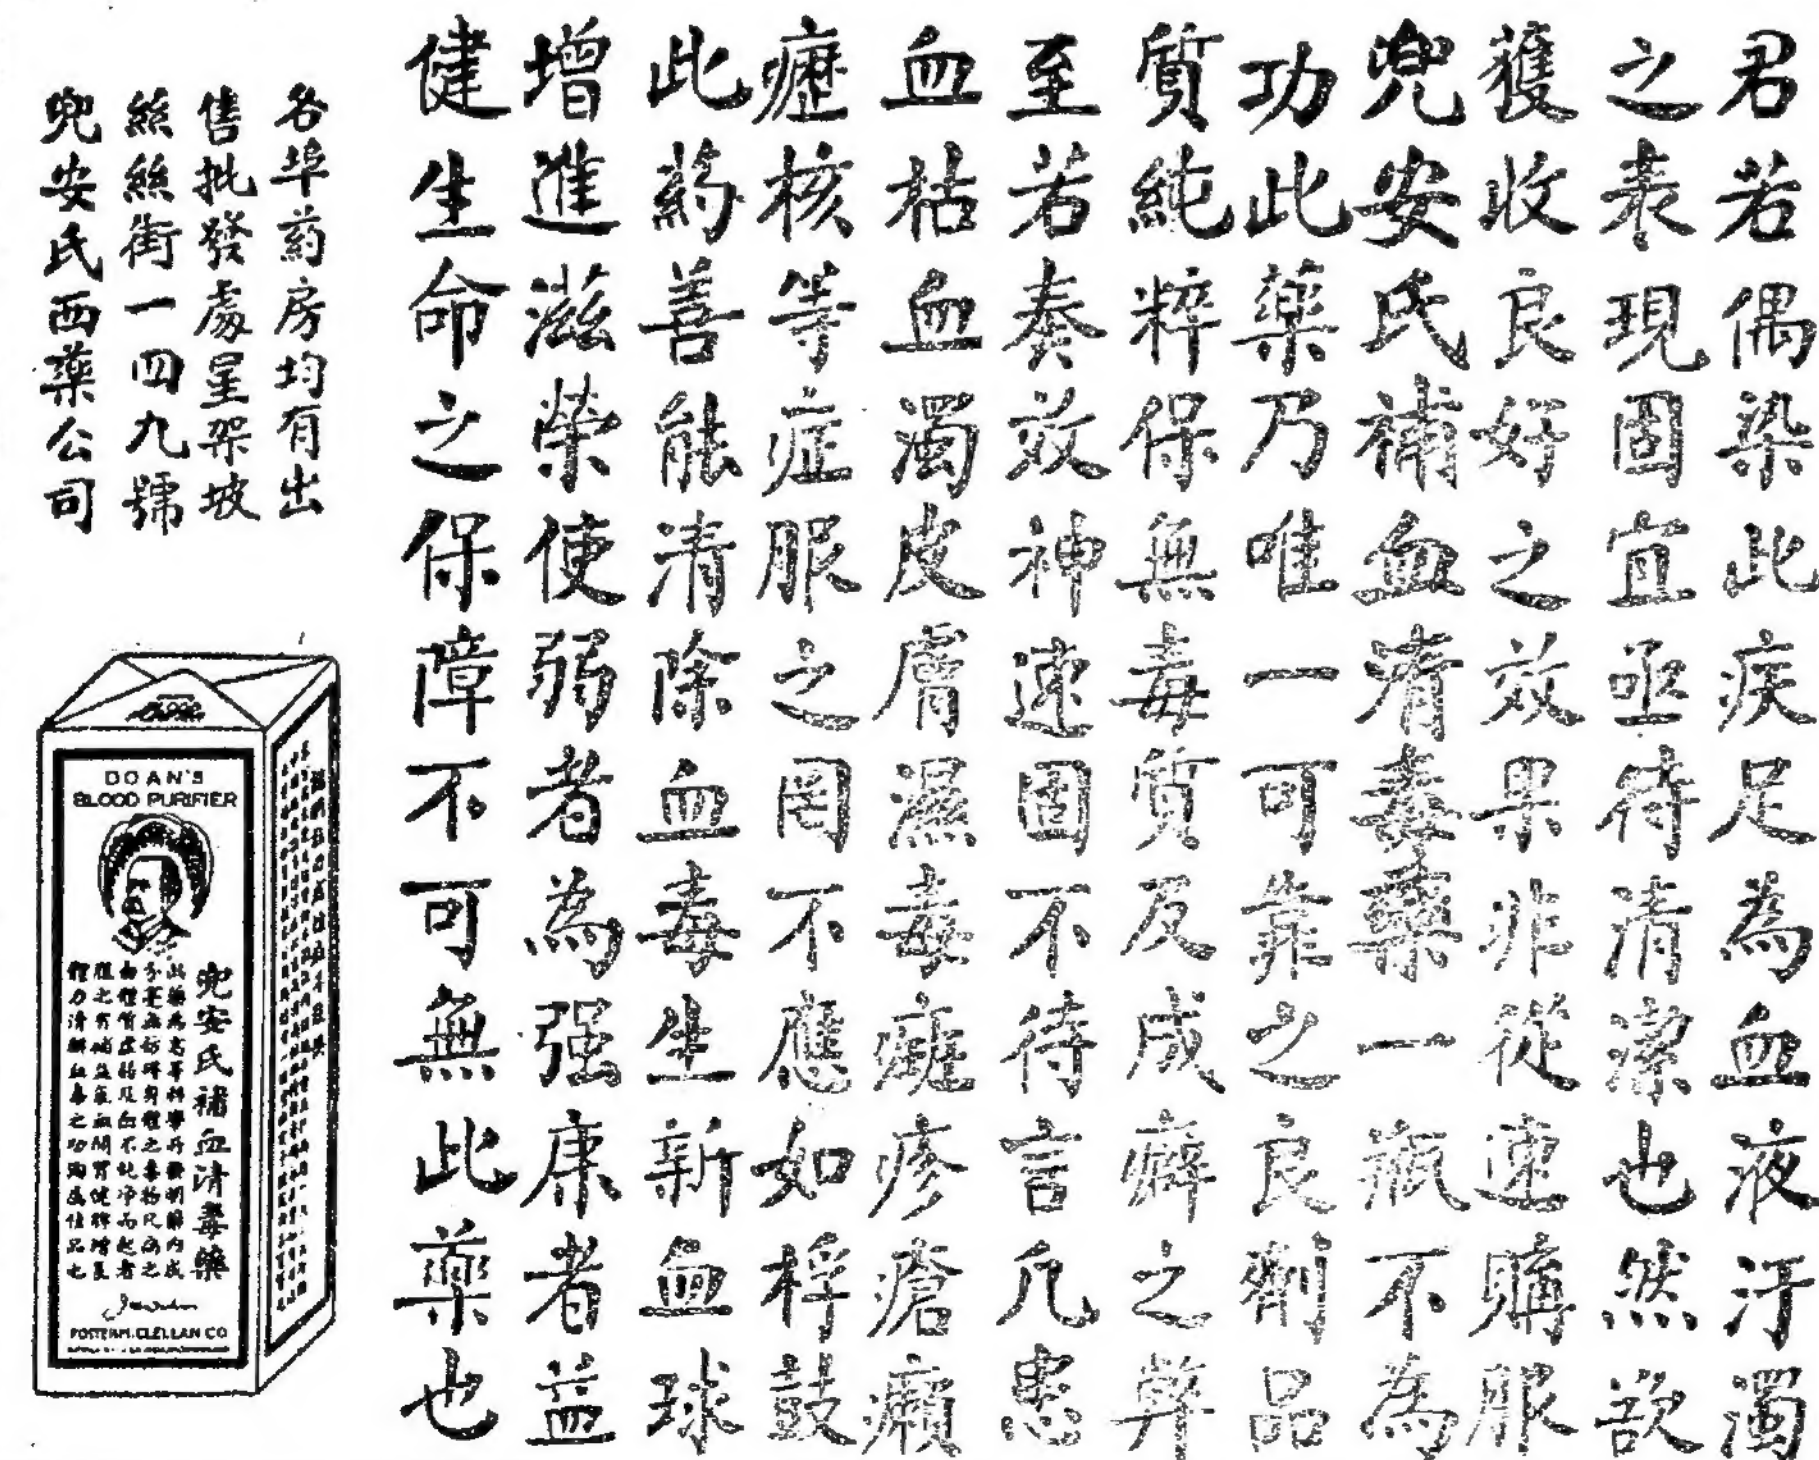 君若偶染此疾足為血液汙濁
之表現固宜亟待清潔也然欲
獲收良好之效果非從速購服
兜安氏補血清毒藥一瓶不為
功此藥乃唯一可靠之良劑品
質純粹保無毒質及成癖之弊
至若奏效神速固不待言凡患
血枯血濁皮膚濕毒癍疹瘡癩
癧核等症服之罔不應如桴鼓
此葯善能清除血毒生新血球
增進滋榮使弱者為强康者益
健生命之保障不可無此藥也
各埠葯房均有出
售批發處星架坡
絲絲街一四九號
兜安氏西藥公司
DOAN'S
BLOOD PURIFIER
兜安氏補血清毒藥
FOSTER McCLELLAN CO